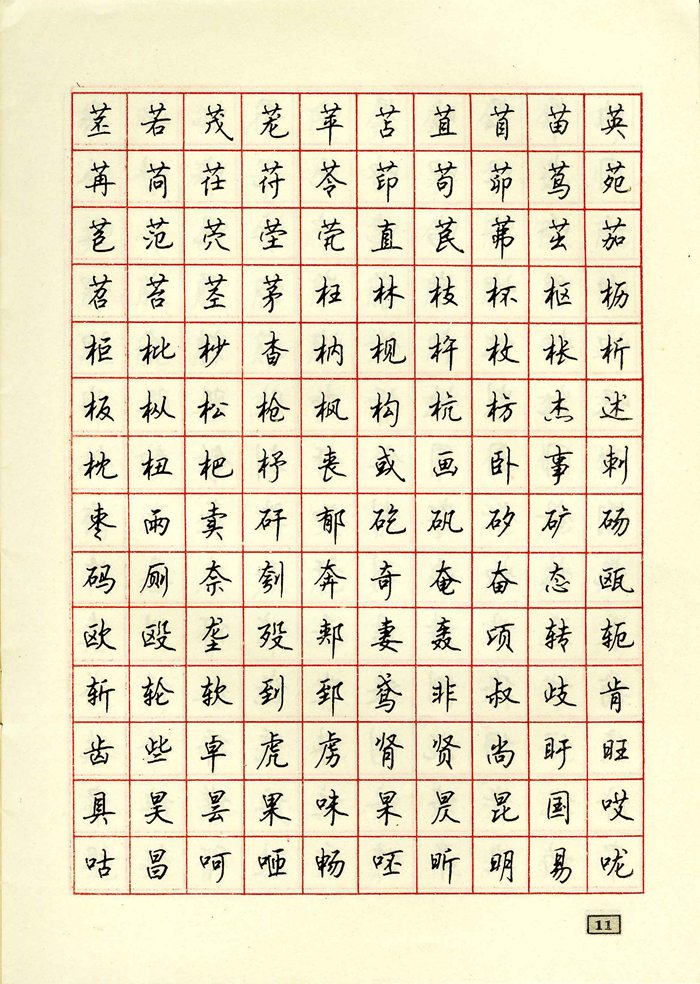 苤若茂茏苹苫苴苜苗英
苒苘茌苻苓茚苟茆茑苑
苞范茓茔茕直茛茀茁茄
苕苔茎茅枉林枝杯枢枥
柜枇杪杳枘枧杵枚枨析
板枞松枪枫构杭枋杰述
枕杻杷杼丧或画卧事刺
枣雨卖矸郁矻矾矽矿砀
码厕奈刳奔奇奄奋态瓯
欧殴垄殁郏妻轰顷转轭
斩轮软到郅鸢非叔歧肯
齿些卓虎虏肾贤尚盱旺
具昊昙果味杲昃昆国哎
咕昌呵咂畅呸昕明易咙
11